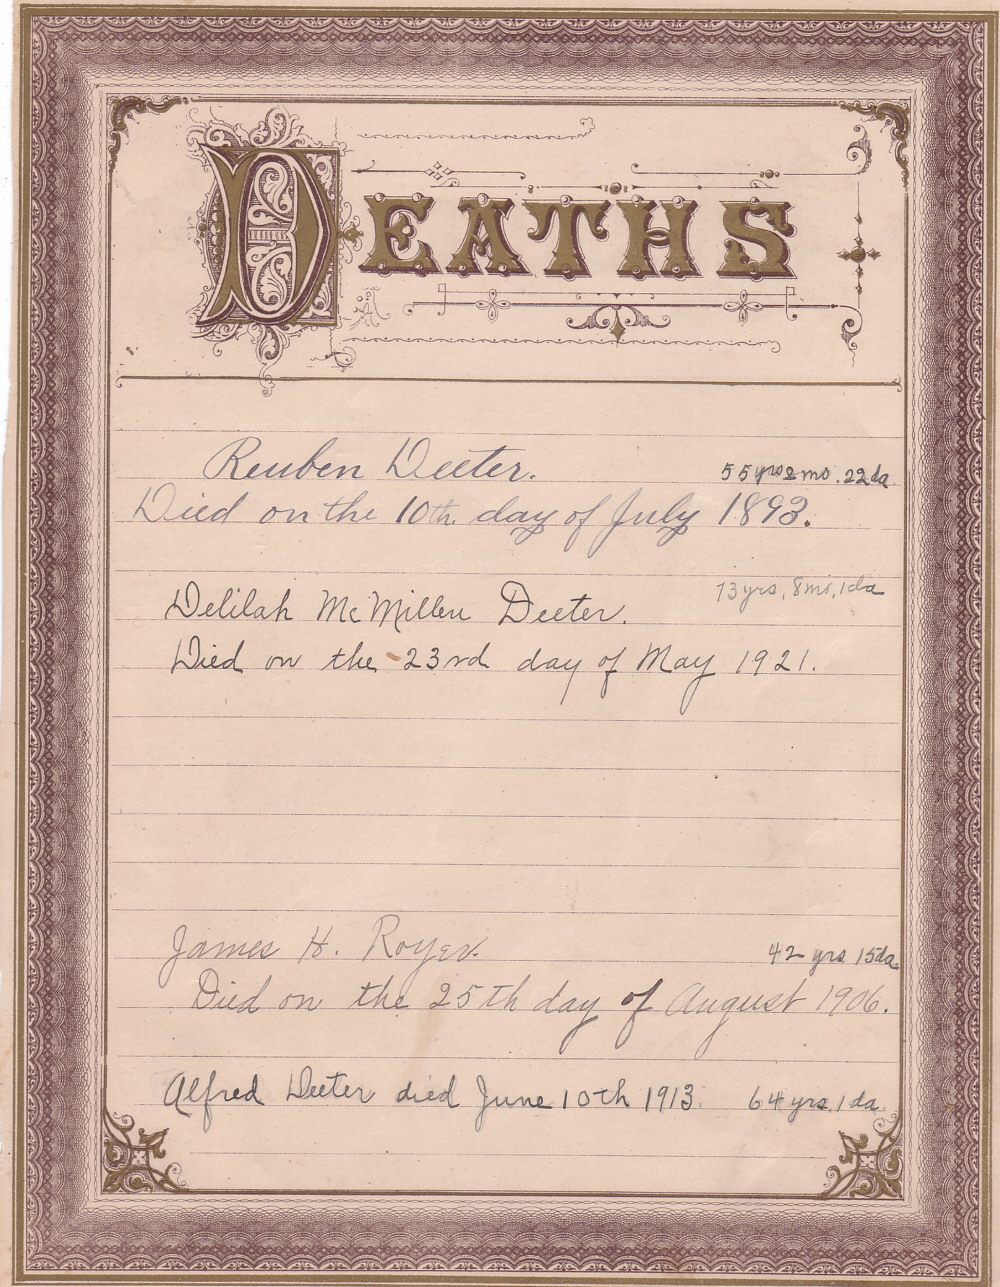 DEATHS
Reuben Deeter. 55 yrs 2 mo. 22 da
Died on the 10th day of July 1893.
Delilah McMillen Deeter. 73 yrs, 8 mo, 1 da
Died on the 23rd day of May 1921.
James H. Royer. 42 yrs 15 da
Died on the 25th day of August 1906.
Alfred Deeter died June 10th 1913. 64 yrs, 1 da